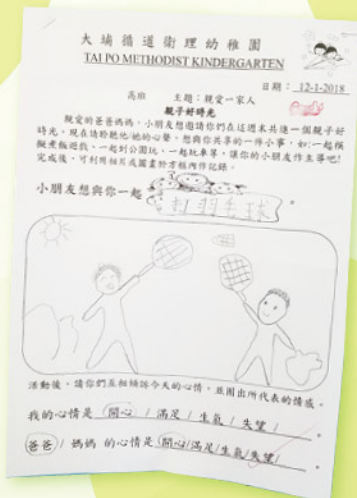 大埔循道衛理幼稚園
TAI PO METHODIST KINDERGARTEN
日期：12-1-2018
高班 主題：親愛一家人
親子好時光
親愛的爸爸媽媽，小朋友想邀請你們在這週末共進一個親子好
時光，現在請聆聽他/她的心聲，想與你共享的一件小事，如:一起模
擬煮飯遊戲、一起到公園玩、一起玩車等，讓你的小朋友作主導吧!
完成後，可利用相片或圖畫於方框內作記錄。
小朋友想與你一起 打羽毛球 。
活動後，請你們互相傾訴今天的心情，並圈出所代表的情感。
我的心情是 開心 / 滿足 / 生氣 / 失望 / 。
爸爸 / 媽媽 的心情是 開心/滿足/生氣/失望/ 。